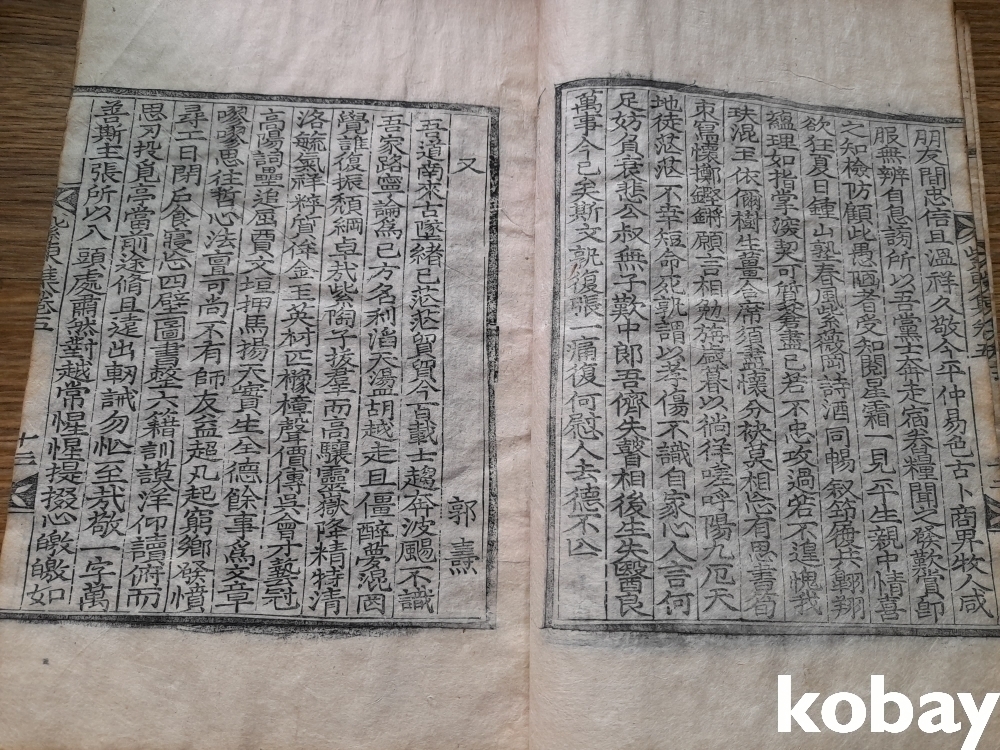 朋友間忠信且溫祥久敬今平仲易色古卜商男牧人咸
服無辨自息謗所以吾黨士奔走宿舂糧聞之發歎賞卽
之知檢防顧此愚陋者受知閱星霜一見平生親中情喜
欲狂夏日鍾山塾春風紫薇岡詩酒同暢叙節履共翺翔
蘊理如指掌深契可質蒼盡己若不忠攻過若不遑愧我
珷混玉依爾樹生薑合席須盡懷分袂莫相忘有思書荀
東臯懷擲鏗鏘願言相勉旃歲暮以徜徉嗟呼陽九厄天
地徒茫茫不幸短命死孰謂以孝傷不識自家心人言何
足妨負哀悲公叔無子歎中郎吾儕失聲相後生失醫良
萬事今已矣斯文孰復張一痛復何慰人去德不亾
又
郭燾
吾道南來古墜緒已茫茫貿貿今百載士趨奔波颺不識
吾家路寧論爲己方名利滔天盪胡越走且僵醉夢混罔
覺誰復振頹綱卓哉紫陶子拔羣而高驤靈嶽降精特淸
洛毓氣祥粹質侔金玉英材匹櫲樟聲價傳吳會才藝冠
高陽詞壘追屈賈文垣押馬揚天實生全德餘事爲文章
嘐嘐思往哲心法亶可尚不有師友益超凡起窮鄕發憤
尋工日閉戶食寢忘四壁圖書整六籍訓謨洋仰讀俯而
思刃投見亭當前途脩且遠出軔誡勿忙至哉敬一字萬
善斯主張所以入頭處肅然對越常惺惺提掇心皦皦如
十二
kobay